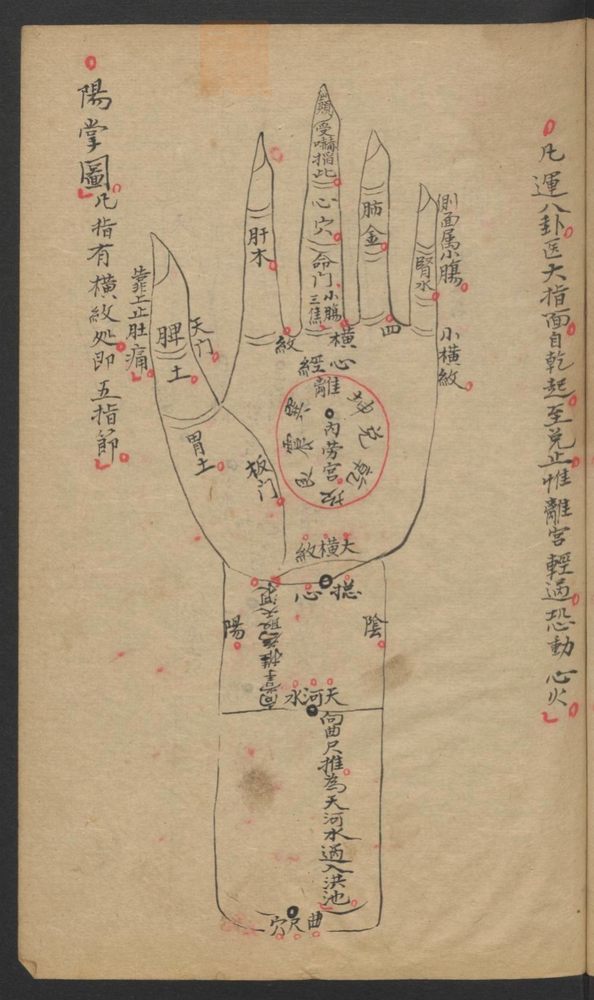 凡運八卦医大指面自乾起至兑止惟離宫輕過恐動心火
側面属小膓
小横紋
腎水
肺金
受嚇掐此
心穴
命门
小膓
三焦
肝木
四横紋
心經
離
坤
兑
乾
坎
艮
震
巽
内劳宫
天门
脾土
胃土
板门
靠上止肚痛
陽掌圖
凡指有横紋处即五指節
大横紋
總心
陰
陽
天河水
向曲尺推為天河水過入洪池
曲尺穴